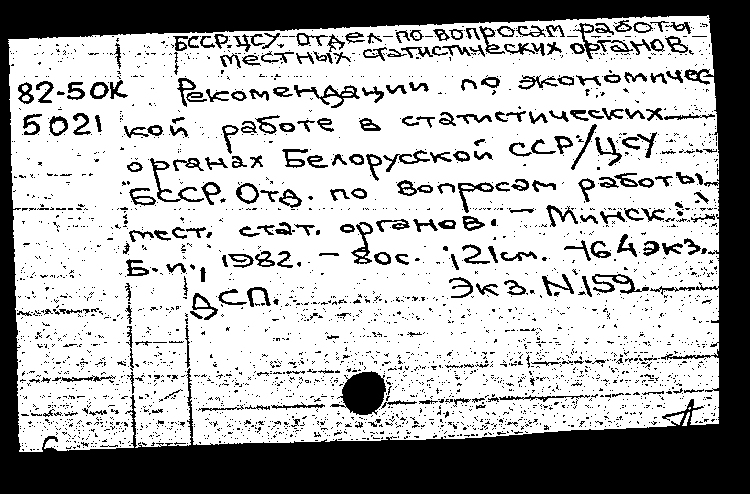 БССР. ЦСУ. Отдел по вопросам работы
местных статистических органов.
82-50К Рекомендации по экономичес
5021 кой работе в статистических
органах Белорусской ССР/ЦСУ
БССР. Отд. по вопросам работы
мест. стат. органов. — Минск:
Б.и., 1982. — 80с. ; 21см. — 164экз.
ДСП. Экз. N.159